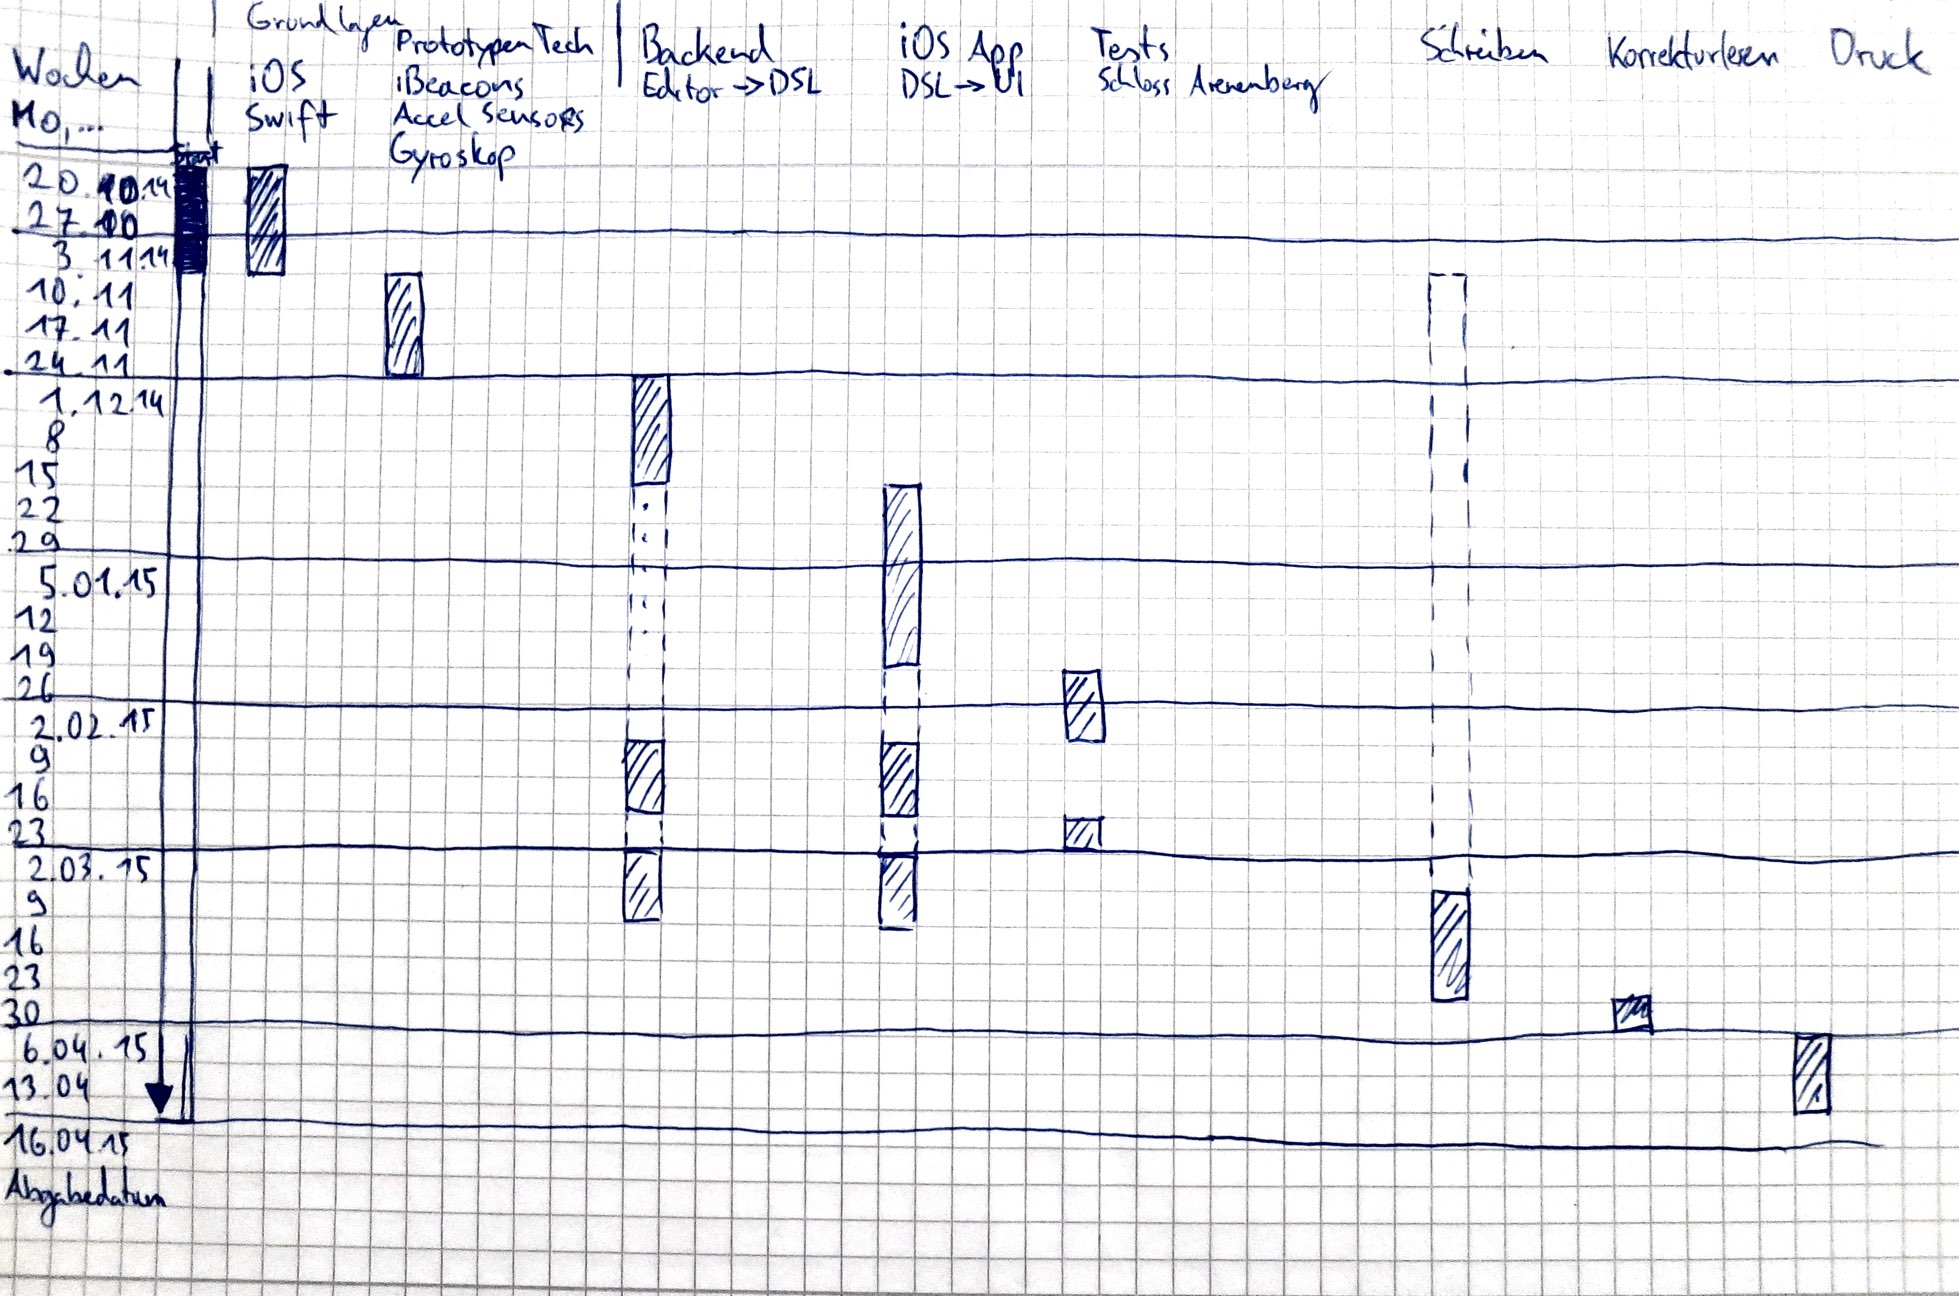 Grundlagen
Wochen
Mo,...
iOS
Swift
Prototypen Tech
iBeacons
Accel Sensors
Gyroskop
Backend
Editor → DSL
iOS App
DSL → UI
Tests
Schloss Arenenberg
Schreiben
Korrekturlesen
Druck
Start
20.10.14
27.10
3.11.14
10.11
17.11
24.11
1.12.14
8
15
22
29
5.01.15
12
19
26
2.02.15
9
16
23
2.03.15
9
16
23
30
6.04.15
13.04
16.04.15
Abgabedatum